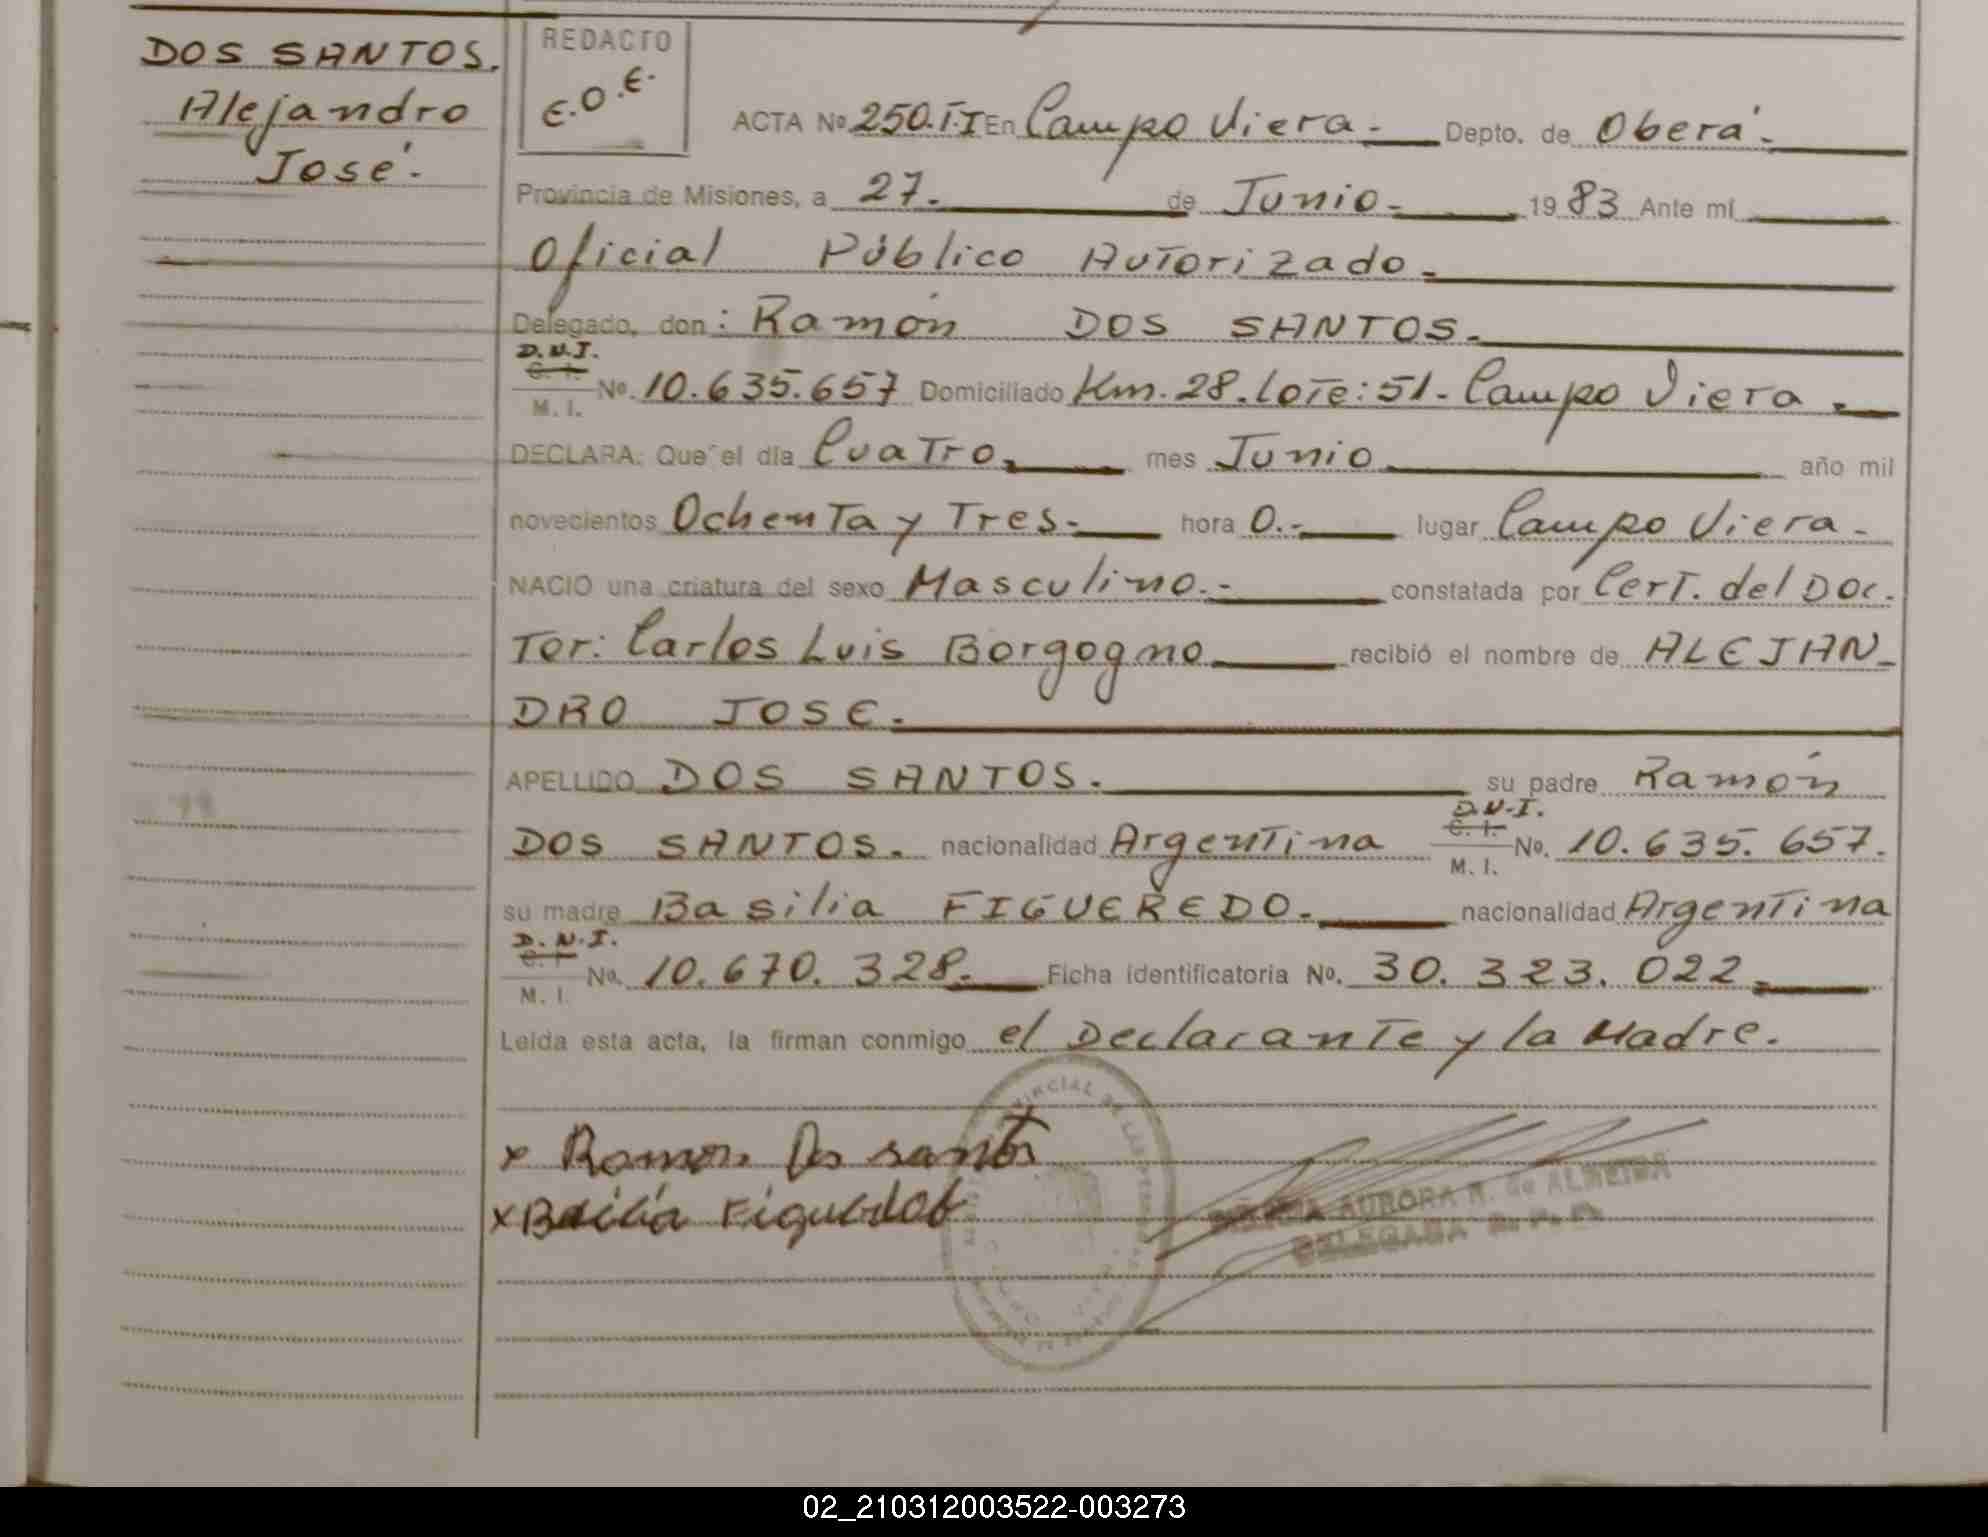 DOS SANTOS.
Alejandro
José.
REDACTO
E.O.E.
ACTA Nº 250.T.I En Campo Viera.- Depto. de Oberá.-
Provincia de Misiones, a 27. de Junio.- 1983 Ante mí
Oficial Público Autorizado.-
Delegado, don: Ramón DOS SANTOS.-
D.N.I.
C. I.
M. I.
Nº. 10.635.657 Domiciliado Km. 28. Lote: 51.- Campo Viera.-
DECLARA: Que el día Cuatro. mes Junio año mil
novecientos Ochenta y Tres.- hora 0.- lugar Campo Viera.-
NACIO una criatura del sexo Masculino.- constatada por Cert. del Doc.
Tor: Carlos Luis Borgogno recibió el nombre de ALEJAN-
DRO JOSE.
APELLIDO DOS SANTOS. su padre Ramón
DOS SANTOS. nacionalidad Argentina
D.N.I.
C. I.
M. I.
Nº. 10.635.657.
su madre Basilia FIGUEREDO.- nacionalidad Argentina
D.N.I.
C. I.
M. I.
Nº. 10.670.328.- Ficha identificatoria Nº. 30.323.022.-
Leída esta acta, la firman conmigo el Declarante y la Madre.
x Ramon Dos santos
x Basilia Figueredo
AURORA R. de ALMEIDA
DELEGADA R. P. P.
02_210312003522-003273